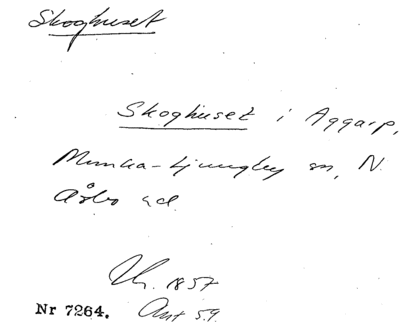 Skoghuset
Skoghuset i Aggarp,
Munka-Ljungby sn, N.
Åsbo hd.
1857
Nr 7264. Ant 59.